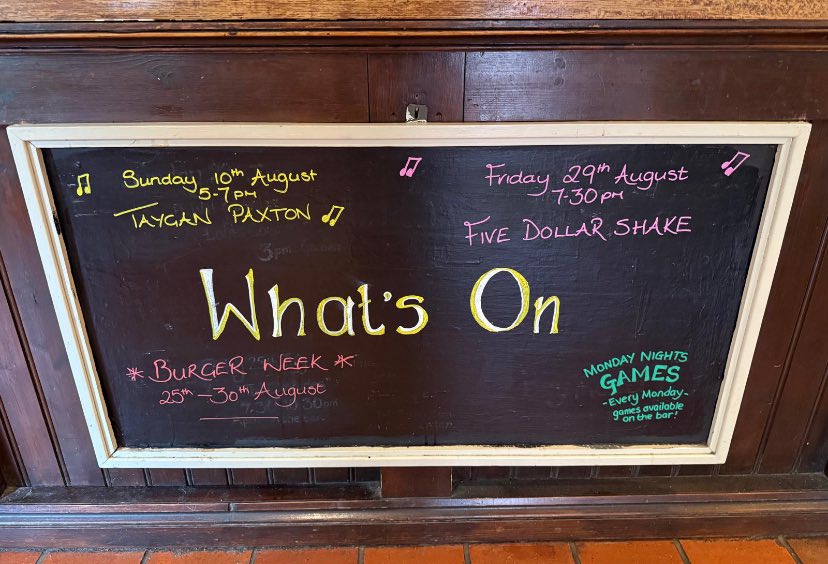 Sunday 10th August
5-7pm
TAYGAN PAXTON
Friday 29th August
7-30pm
FIVE DOLLAR SHAKE
What's On
* BURGER WEEK *
25th - 30th August
MONDAY NIGHTS
GAMES
- Every Monday -
games available
on the bar!